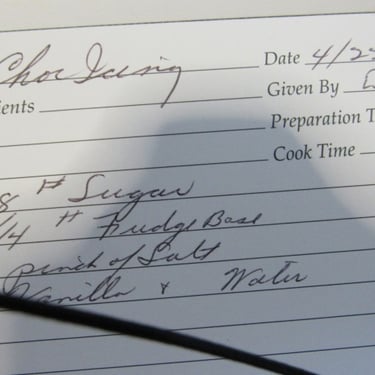 Choc Icing
Date 4/23
Given By
ients
Preparation T
Cook Time
8 # Sugar
/4 # Fudge Base
pinch of Salt
Vanilla & Water